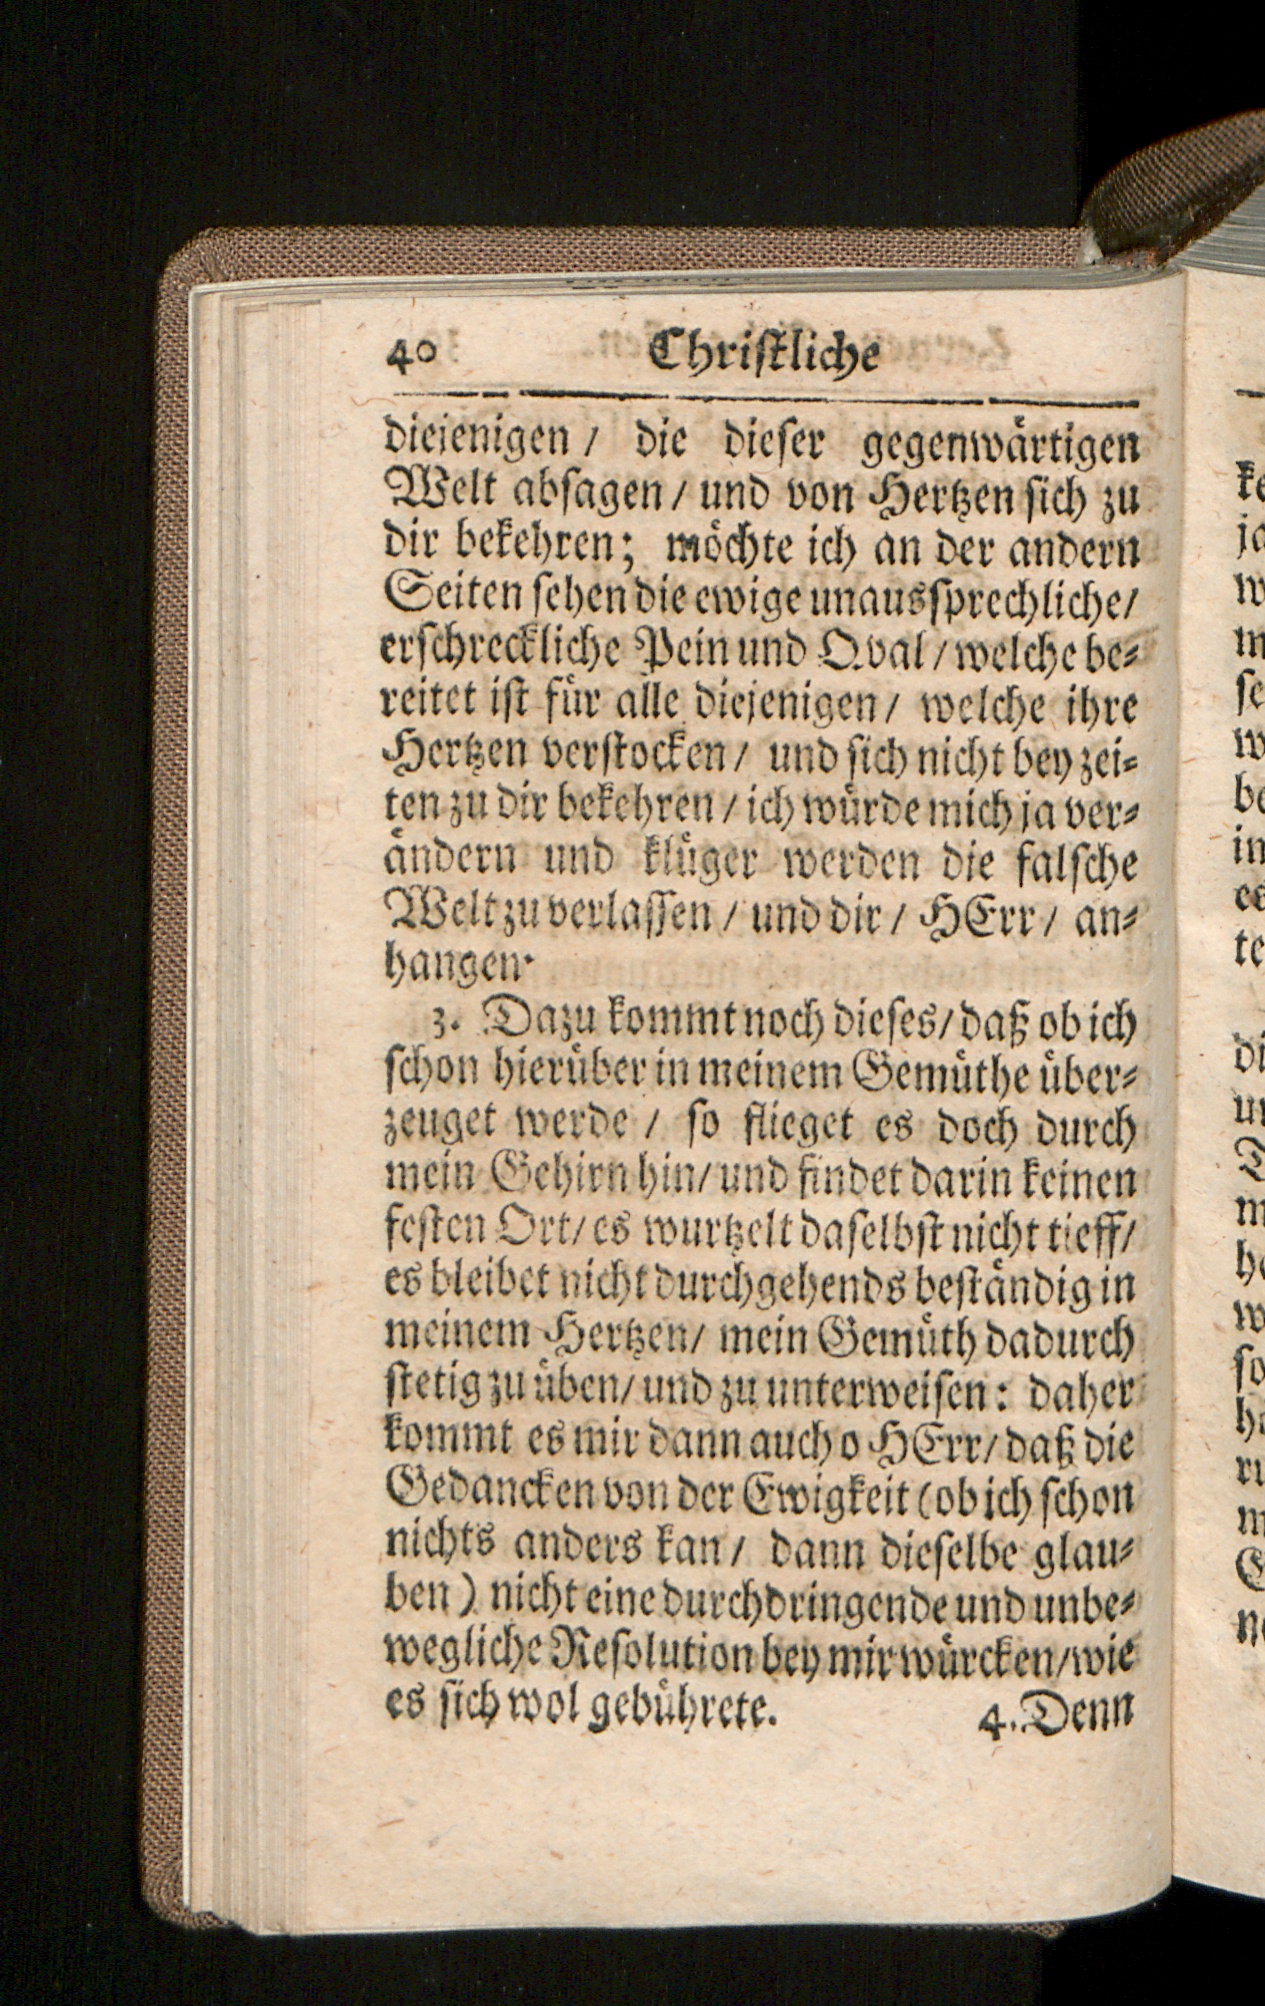 40 Christliche
diejenigen / die dieser gegenwärtigen
Welt absagen / und von Hertzen sich zu
dir bekehren; möchte ich an der andern
Seiten sehen die ewige unaussprechliche /
erschreckliche Pein und Qval / welche be-
reitet ist für alle diejenigen / welche ihre
Hertzen verstocken / und sich nicht bey zei-
ten zu dir bekehren / ich würde mich ja ver-
ändern und klüger werden die falsche
Welt zu verlassen / und dir / HErr / an-
hangen.
3. Dazu kommt noch dieses / daß ob ich
schon hierüber in meinem Gemüthe über-
zeuget werde / so flieget es doch durch
mein Gehirn hin / und findet darin keinen
festen Ort / es wurtzelt daselbst nicht tieff /
es bleibet nicht durchgehends beständig in
meinem Hertzen / mein Gemüth dadurch
stetig zu üben / und zu unterweisen: daher
kommt es mir dann auch o HErr / daß die
Gedancken von der Ewigkeit (ob ich schon
nichts anders kan / dann dieselbe glau-
ben) nicht eine durchdringende und unbe-
wegliche Resolution bey mir würcken / wie
es sich wol gebührete. 4. Denn